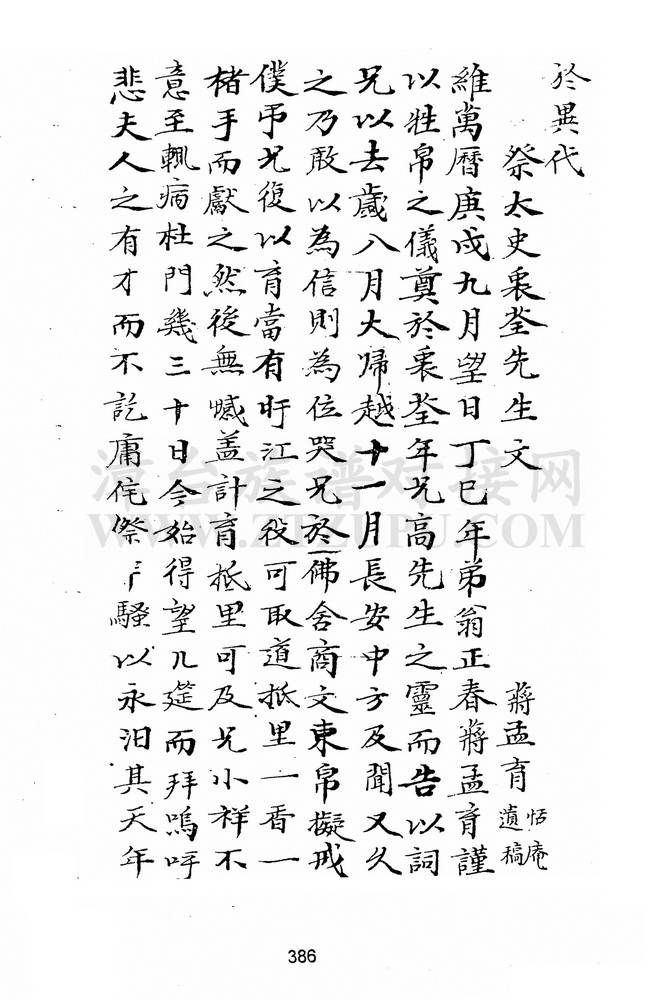 於異代
祭太史乘荃先生文
蔣孟育 恬庵遺稿
維萬曆庚戌九月望日丁巳年弟翁正春蔣孟育謹
以牲帛之儀奠於乘荃年兄高先生之靈而告以詞
兄以去歲八月大歸越十一月長安中方及聞又久
之乃敢以為信則為位哭兄於一佛舍商文束帛擬戒
僕弔兄復以育當有旴江之役可取道抵里一香一
楮手而獻之然後無憾盖計育抵里可及兄小祥不
意至輒病杜門幾三十日今始得望几筵而拜嗚呼
悲夫人之有才而不訖庸侘傺騷以永汨其天年
漳台族谱对接网
WWW.ZTZUPU.COM
386